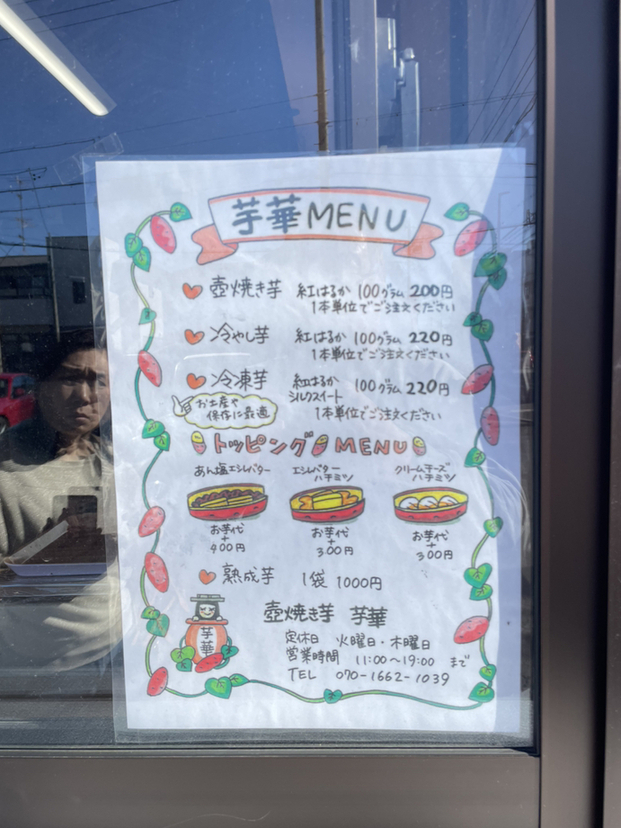 芋華MENU
壺焼き芋 紅はるか 100グラム 200円
1本単位でご注文ください
冷やし芋 紅はるか 100グラム 220円
1本単位でご注文ください
冷凍芋 紅はるか シルクスイート 100グラム 220円
お土産や保存に最適
1本単位でご注文ください
トッピングMENU
あん塩エシレバター エシレバターハチミツ クリームチーズハチミツ
お芋代+400円 お芋代+300円 お芋代+300円
熟成芋 1袋 1000円
芋華
壺焼き芋 芋華
定休日 火曜日・木曜日
営業時間 11:00〜19:00 まで
TEL 070-1662-1039